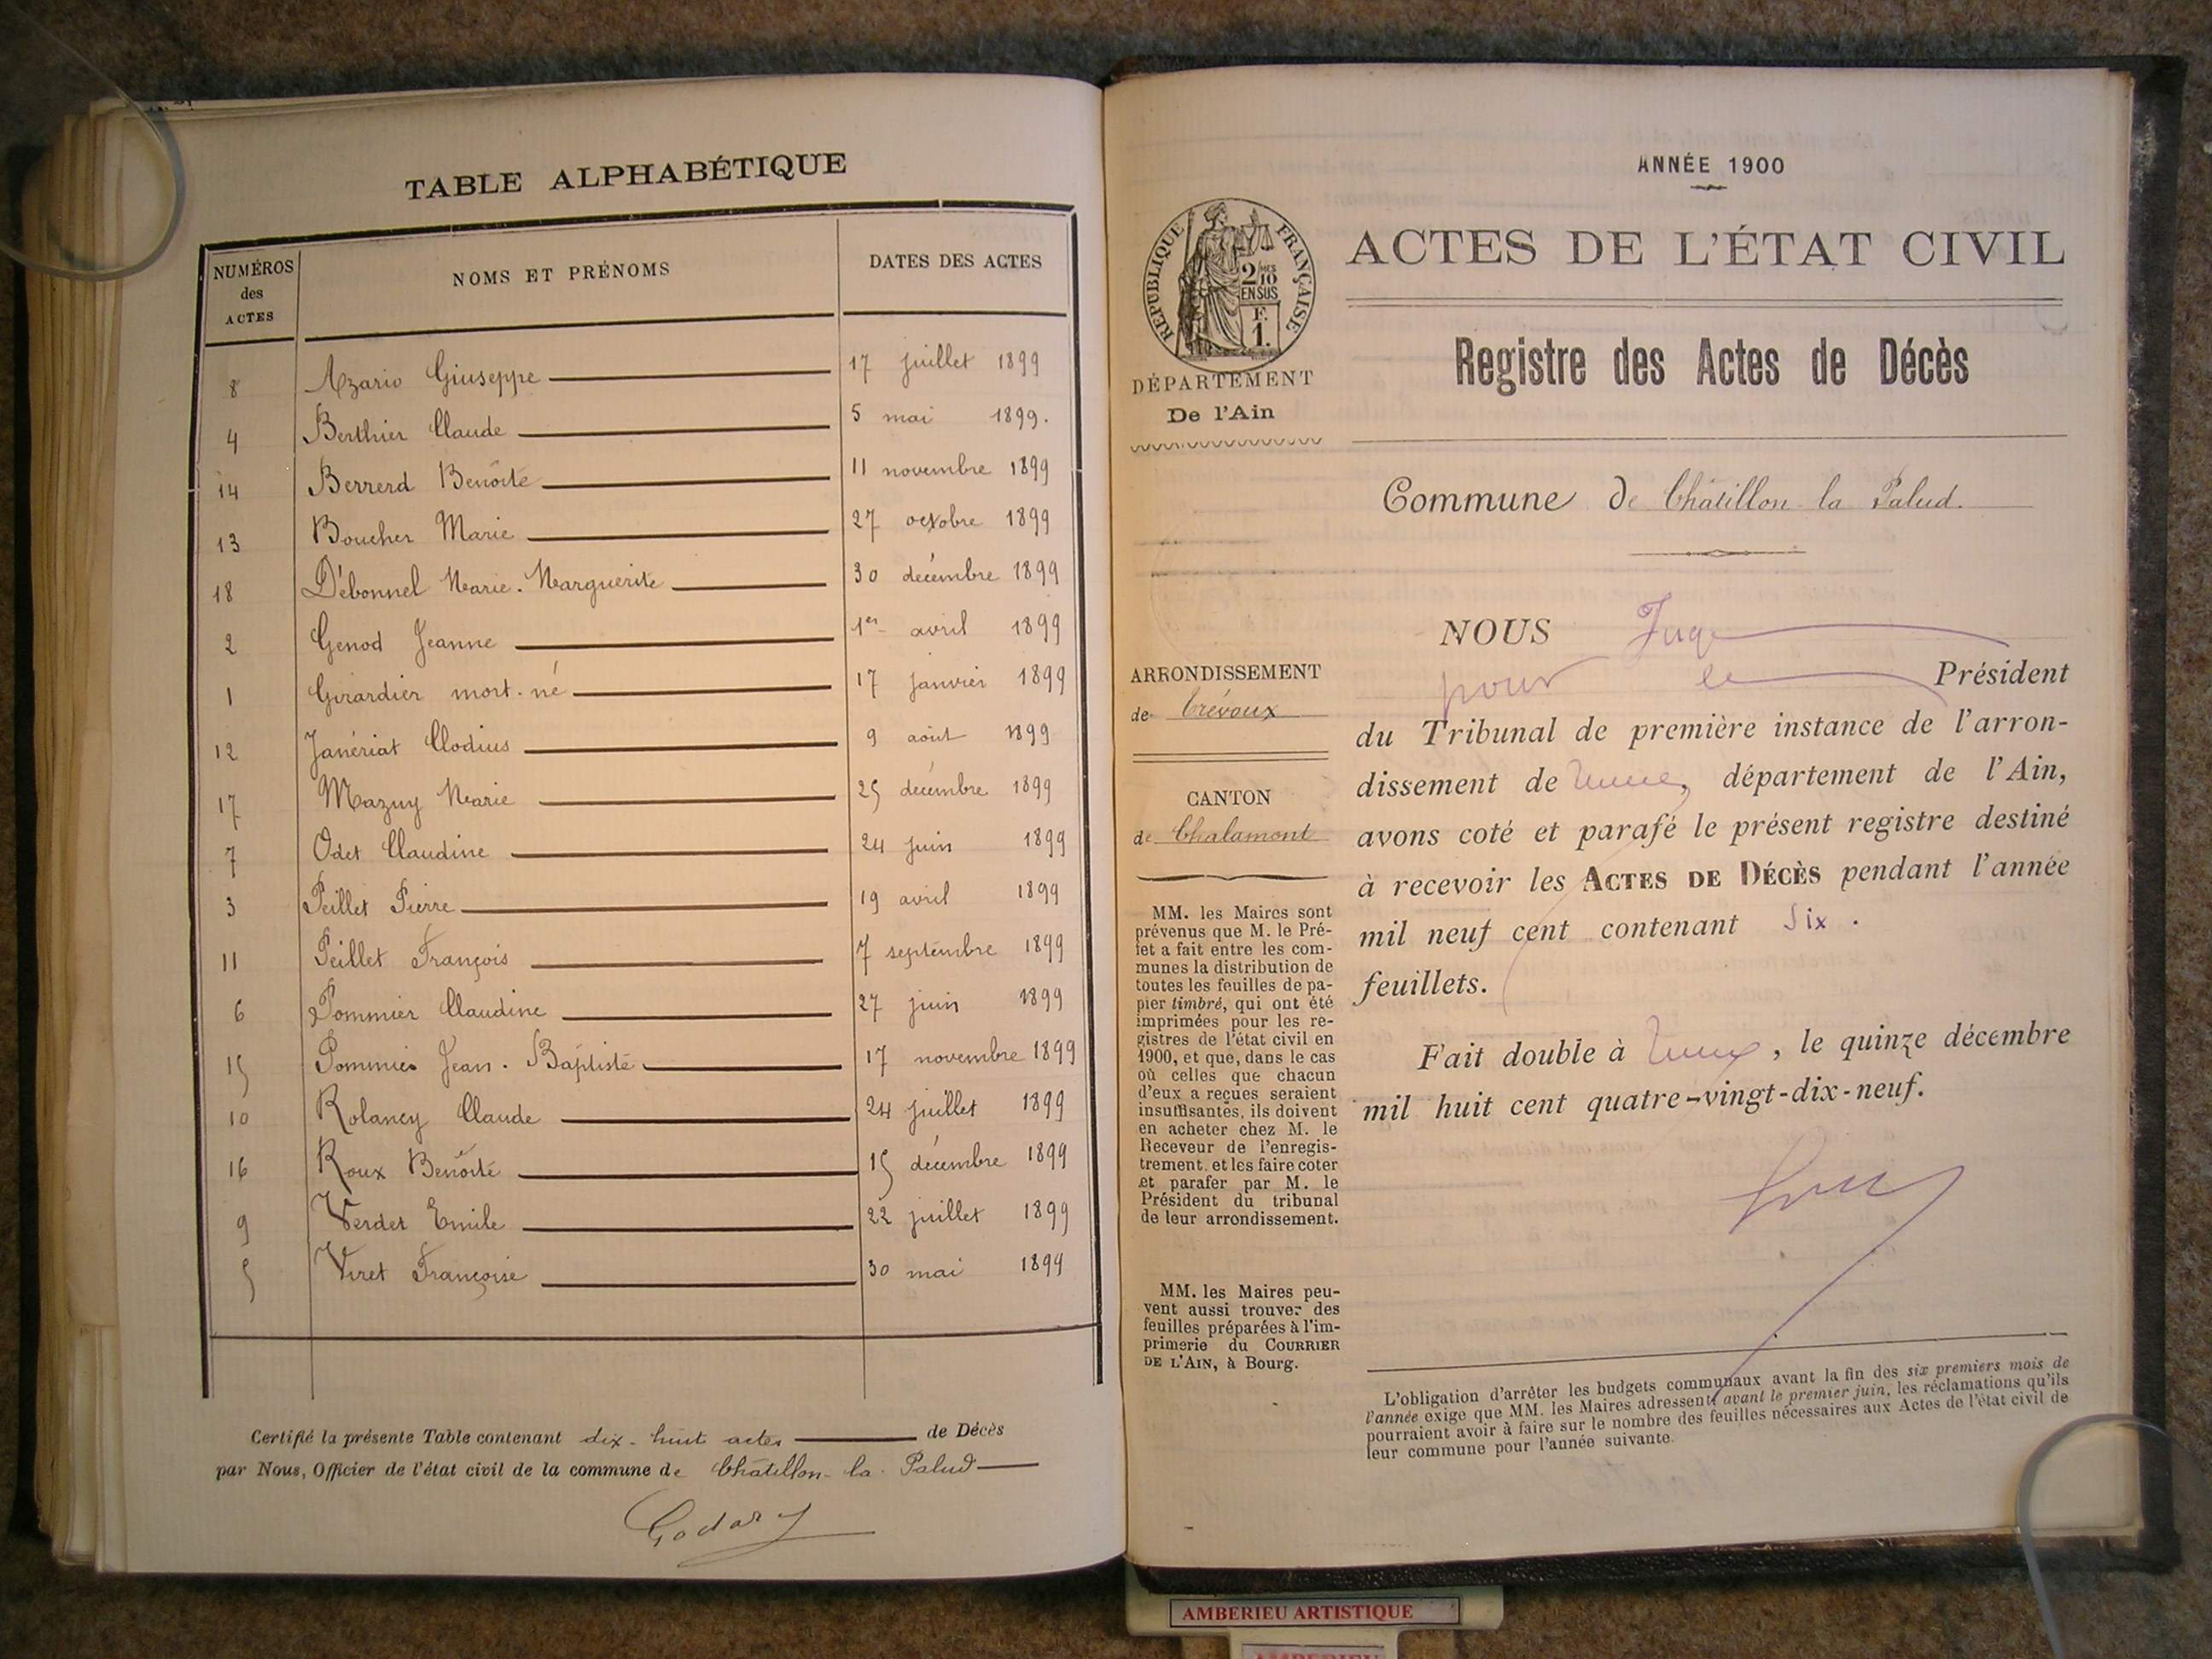 TABLE ALPHABÉTIQUE
NUMÉROS des ACTES NOMS ET PRÉNOMS DATES DES ACTES
8 Azario Giuseppe 17 juillet 1899
4 Berthier Claude 5 mai 1899.
14 Berrerd Benoîte 11 novembre 1899
13 Boucher Marie 27 octobre 1899
18 Débonnel Marie-Marguerite 30 décembre 1899
2 Genod Jeanne 1er avril 1899
1 Girardier mort-né 17 janvier 1899
12 Janériat Clodius 9 août 1899
17 Mazuy Marie 25 décembre 1899
7 Odet Claudine 24 juin 1899
3 Peillet Pierre 19 avril 1899
11 Peillet François 7 septembre 1899
6 Pommier Claudine 27 juin 1899
15 Pommier Jean-Baptiste 17 novembre 1899
10 Rolancy Claude 24 juillet 1899
16 Roux Benoîte 15 décembre 1899
9 Verdet Emile 22 juillet 1899
5 Viret Françoise 30 mai 1899
Certifié la présente Table contenant dix-huit actes de Décès
par Nous, Officier de l'état civil de la commune de Châtillon-la-Palud
Godary
ANNÉE 1900
RÉPUBLIQUE FRANÇAISE
2/10 MES
EN SUS
F.
1.
DÉPARTEMENT
De l'Ain
ARRONDISSEMENT
de Trévoux
CANTON
de Chalamont
MM. les Maires sont
prévenus que M. le Pré-
fet a fait entre les com-
munes la distribution de
toutes les feuilles de pa-
pier timbré, qui ont été
imprimées pour les re-
gistres de l'état civil en
1900, et que, dans le cas
où celles que chacun
d'eux a reçues seraient
insuffisantes, ils doivent
en acheter chez M. le
Receveur de l'enregis-
trement, et les faire coter
et parafer par M. le
Président du tribunal
de leur arrondissement.
MM. les Maires peu-
vent aussi trouver des
feuilles préparées à l'im-
primerie du COURRIER
DE L'AIN, à Bourg.
ACTES DE L'ÉTAT CIVIL
Registre des Actes de Décès
Commune de Châtillon la Palud.
NOUS Juge
pour le Président
du Tribunal de première instance de l'arron-
dissement de Trévoux, département de l'Ain,
avons coté et parafé le présent registre destiné
à recevoir les ACTES DE DÉCÈS pendant l'année
mil neuf cent contenant six.
feuillets.
Fait double à Trévoux, le quinze décembre
mil huit cent quatre-vingt-dix-neuf.
L'obligation d'arrêter les budgets communaux avant la fin des six premiers mois de
l'année exige que MM. les Maires adressent, avant le premier juin, les réclamations qu'ils
pourraient avoir à faire sur le nombre des feuilles nécessaires aux Actes de l'état civil de
leur commune pour l'année suivante.
AMBERIEU ARTISTIQUE
AMBERIEU